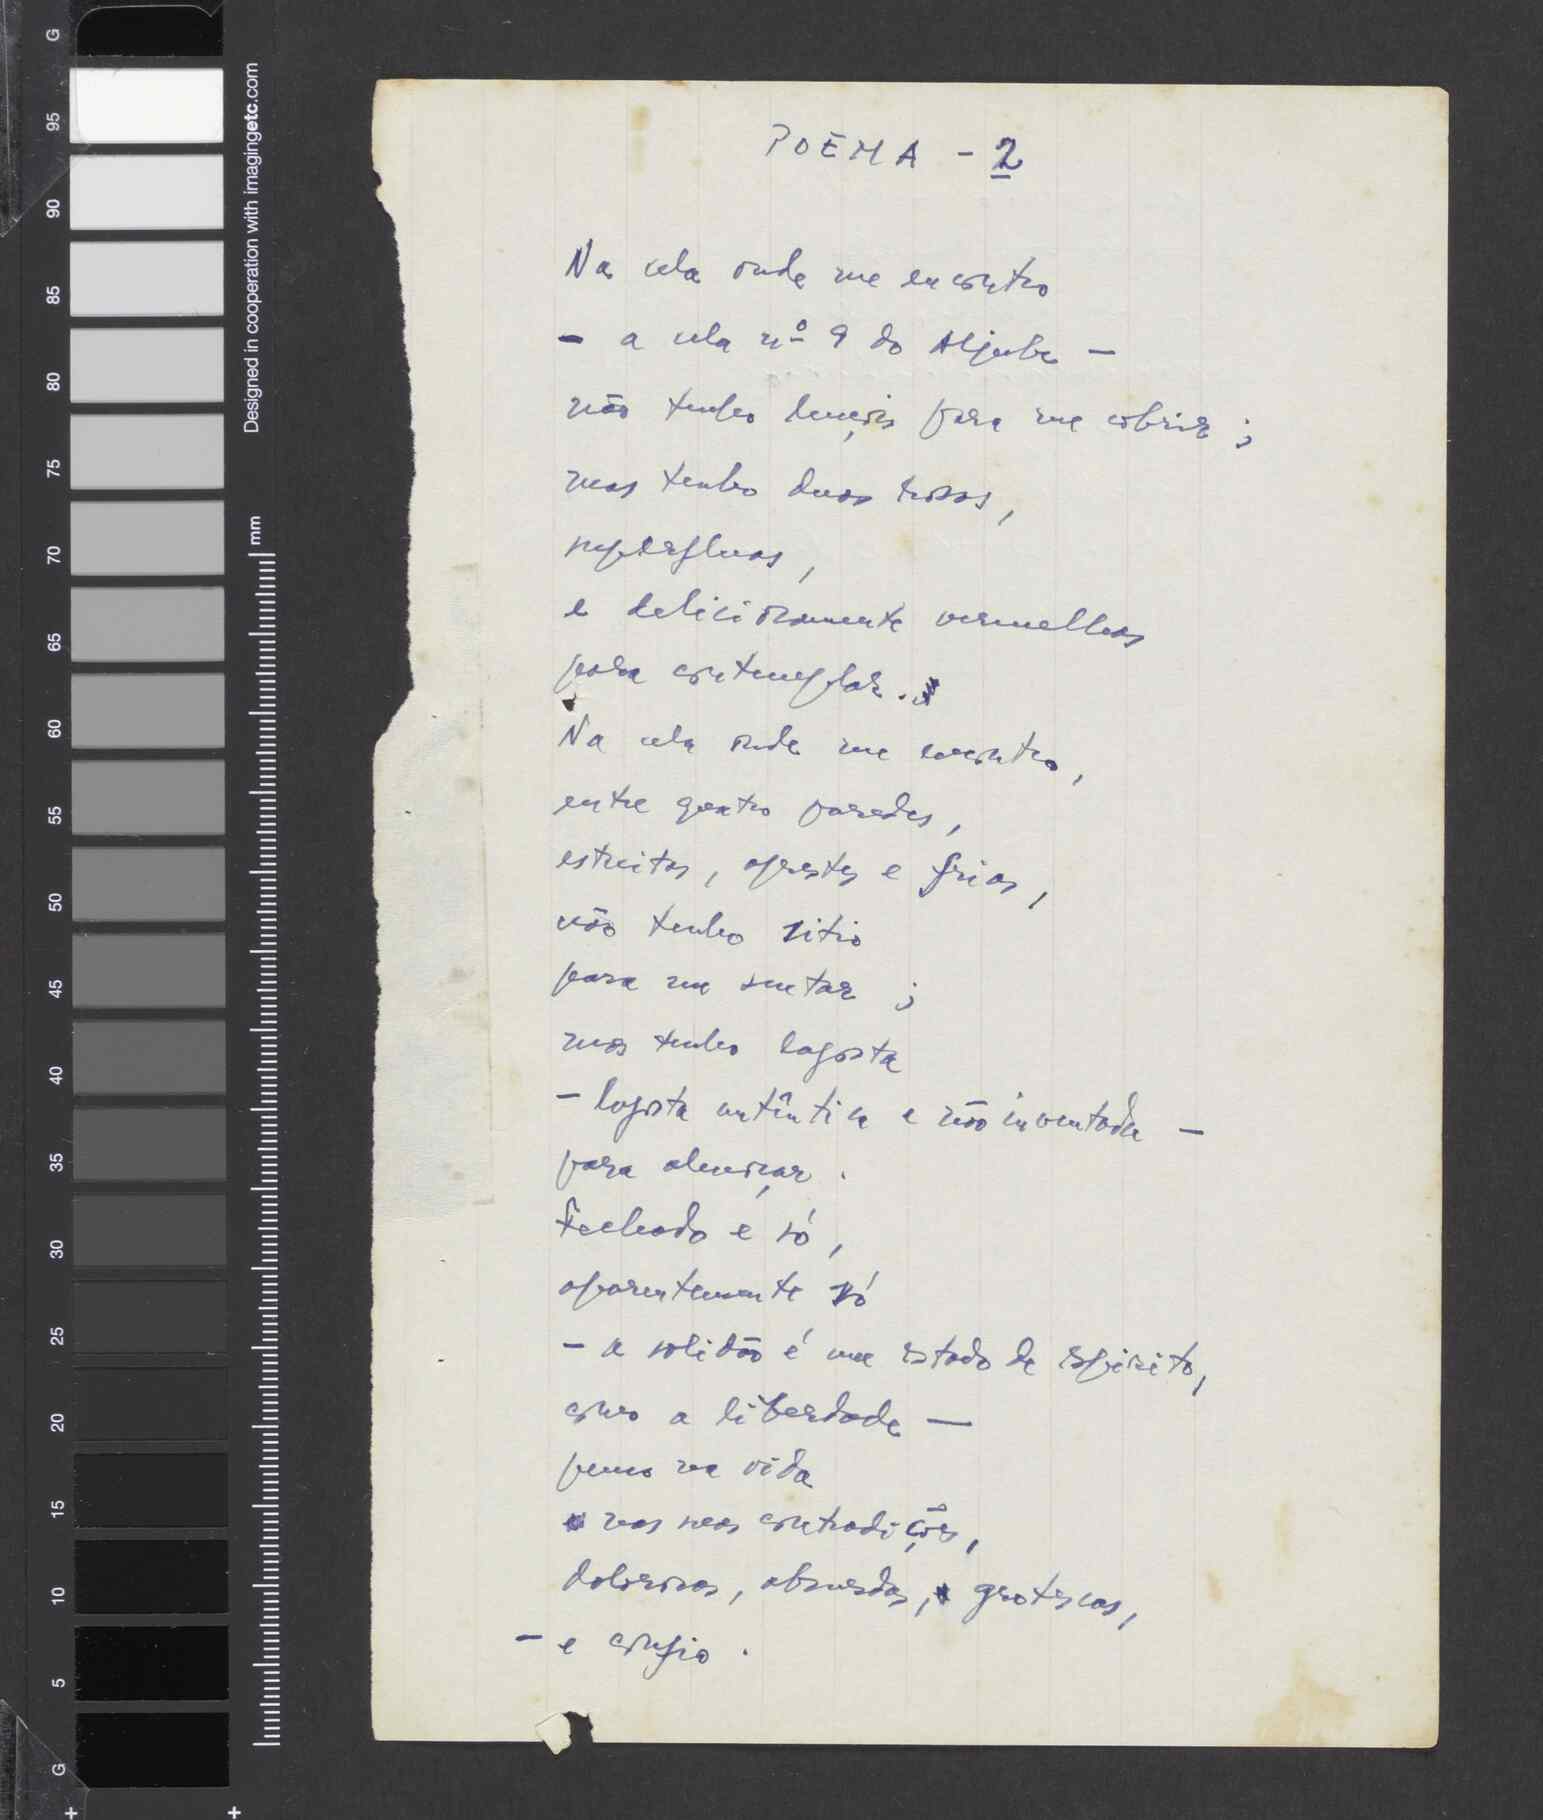 POEMA - 2
Na cela onde me encontro
- a cela nº 9 do Aljube -
não tenho lençois para me cobrir;
mas tenho duas rosas,
superfluas,
e deliciosamente vermelhas
para contemplar.
Na cela onde me encontro,
entre quatro paredes,
estreitas, agrestes e frias,
não tenho sitio
para me sentar;
mas tenho lagosta
- lagosta autêntica e não inventada -
para almoçar.
Fechado e só,
aparentemente só
- a solidão é um estado de espirito,
como a liberdade -
penso na vida
nas suas contradições,
dolorosas, absurdas, grotescas,
- e confio.
G
95
90
85
80
75
70
65
60
55
50
45
40
35
30
25
20
15
10
5
G
Designed in cooperation with imagingetc.com
mm